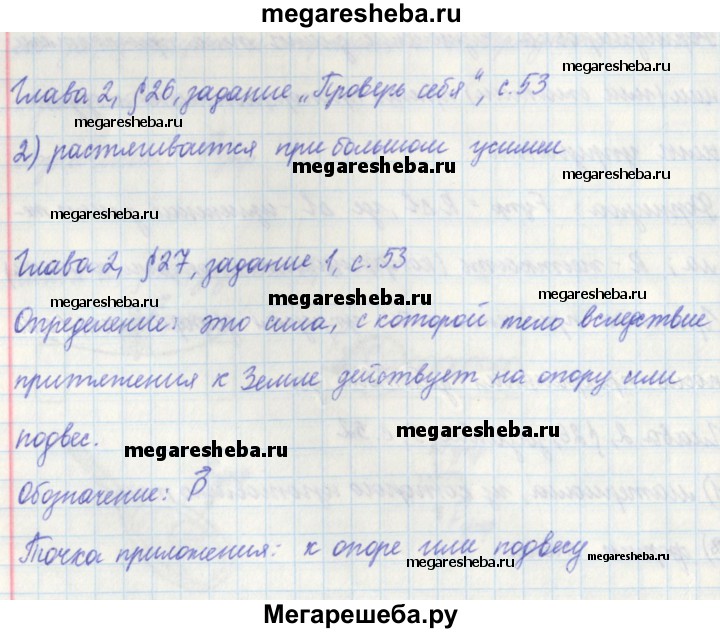 megaresheba.ru
megaresheba.ru
Глава 2, §26, задание „Проверь себя“, с. 53
megaresheba.ru
megaresheba.ru
2) растягивается при большом усилии
megaresheba.ru
megaresheba.ru
Глава 2, §27, задание 1, с. 53
megaresheba.ru
megaresheba.ru
megaresheba.ru
Определение: это сила, с которой тело вследствие
притяжения к Земле действует на опору или
подвес.
megaresheba.ru
megaresheba.ru
Обозначение: P⃗
Точка приложения: к опоре или подвесу
megaresheba.ru
megaresheba.ru
Мегарешеба.ру